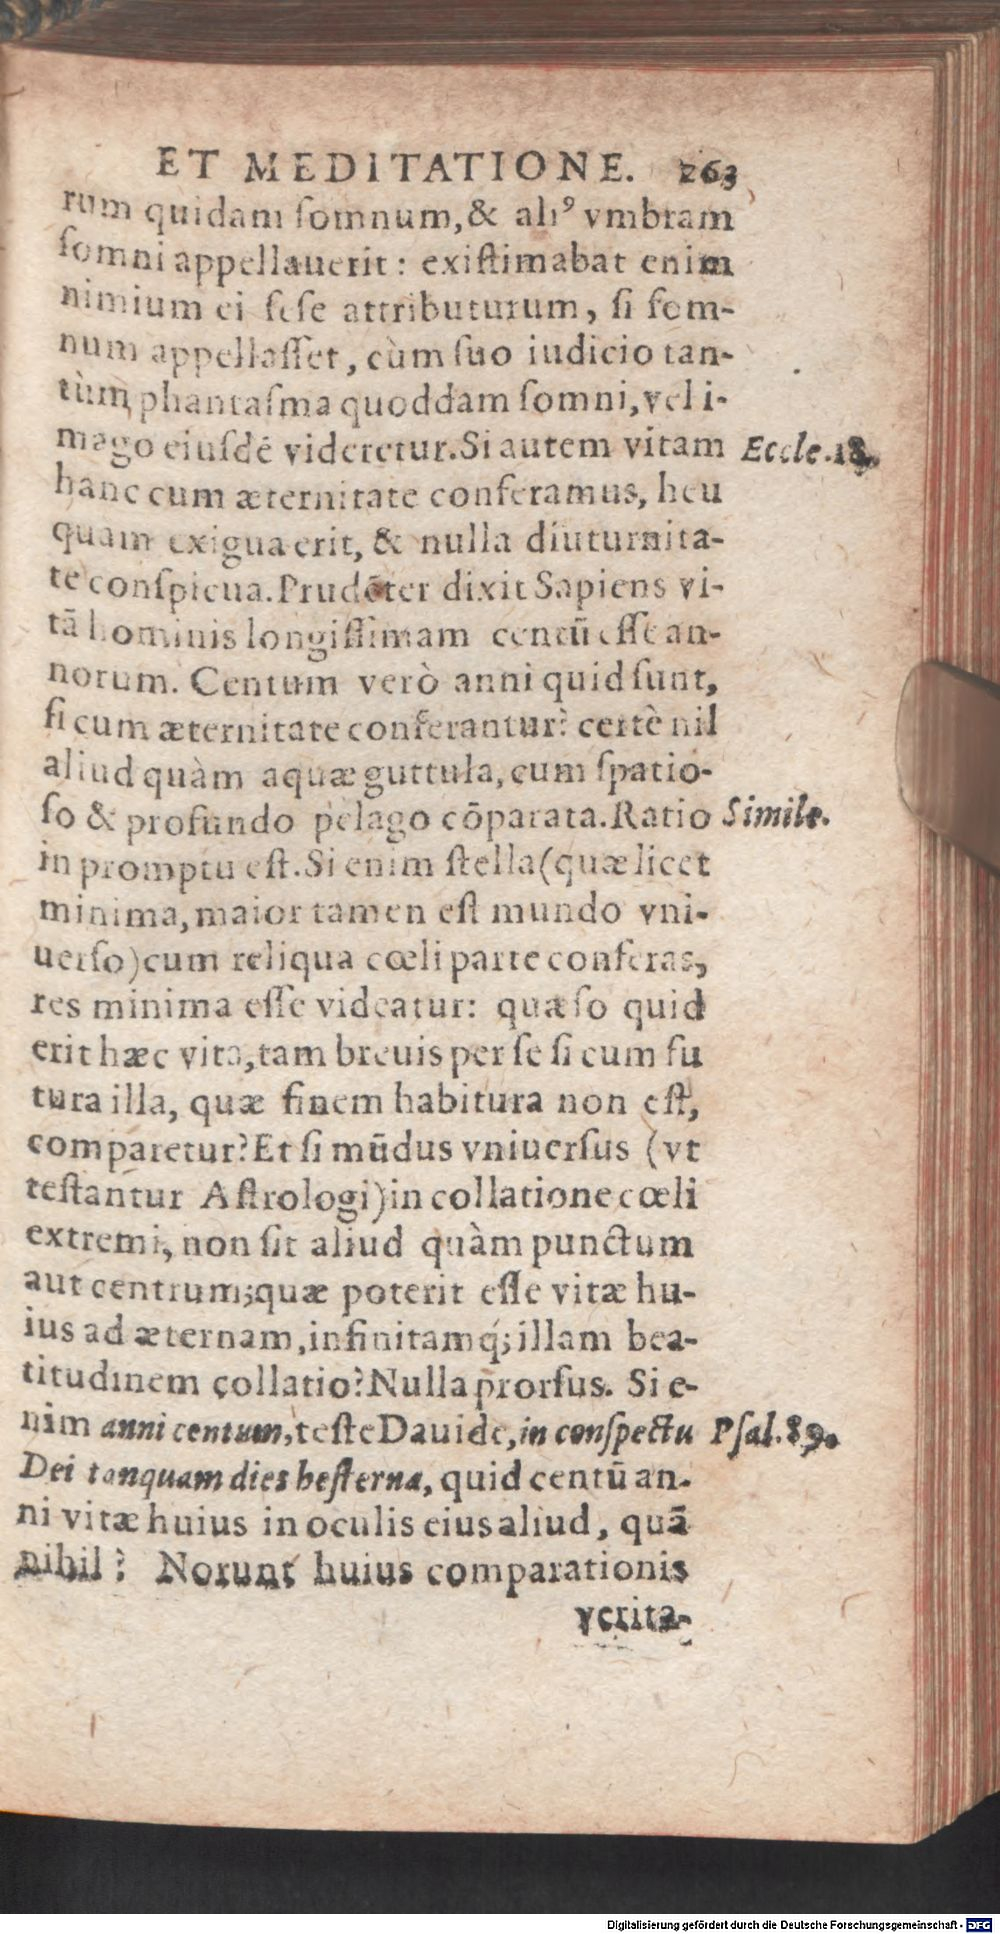 ET MEDITATIONE. 263
rum quidam ſomnum, & aliꝰ vmbram
ſomni appellauerit: exiſtimabat enim
nimium ei ſeſe attributurum, ſi ſom-
num appellaſſet, cùm ſuo iudicio tan-
tùm phantaſma quoddam ſomni, vel i-
mago eiuſdē videretur. Si autem vitam
Eccle. 18.
hanc cum æternitate conferamus, heu
quam exigua erit, & nulla diuturnita-
te conſpicua. Prudēter dixit Sapiens vi-
tā hominis longiſſimam centū eſſe an-
norum. Centum verò anni quid ſunt,
ſi cum æternitate conferantur? certè nil
aliud quàm aquæ guttula, cum ſpatio-
ſo & profundo pelago cōparata. Ratio
Simile.
in promptu eſt. Si enim ſtella (quæ licet
minima, maior tamen eſt mundo vni-
uerſo) cum reliqua cœli parte conferas,
res minima eſſe videatur: quæſo quid
erit hæc vita, tam breuis per ſe ſi cum fu
tura illa, quæ finem habitura non eſt,
comparetur? Et ſi mūdus vniuerſus (vt
teſtantur Aſtrologi) in collatione cœli
extremi, non ſit aliud quàm punctum
aut centrum; quæ poterit eſſe vitæ hu-
ius ad æternam, infinitamq́; illam bea-
titudinem collatio? Nulla prorſus. Si e-
nim anni centum, teſte Dauide, in conſpectu
Pſal. 89.
Dei tanquam dies heſterna, quid centū an-
ni vitæ huius in oculis eius aliud, quā
nihil? Norunt huius comparationis
verita-
Digitalisierung gefördert durch die Deutsche Forschungsgemeinschaft - DFG